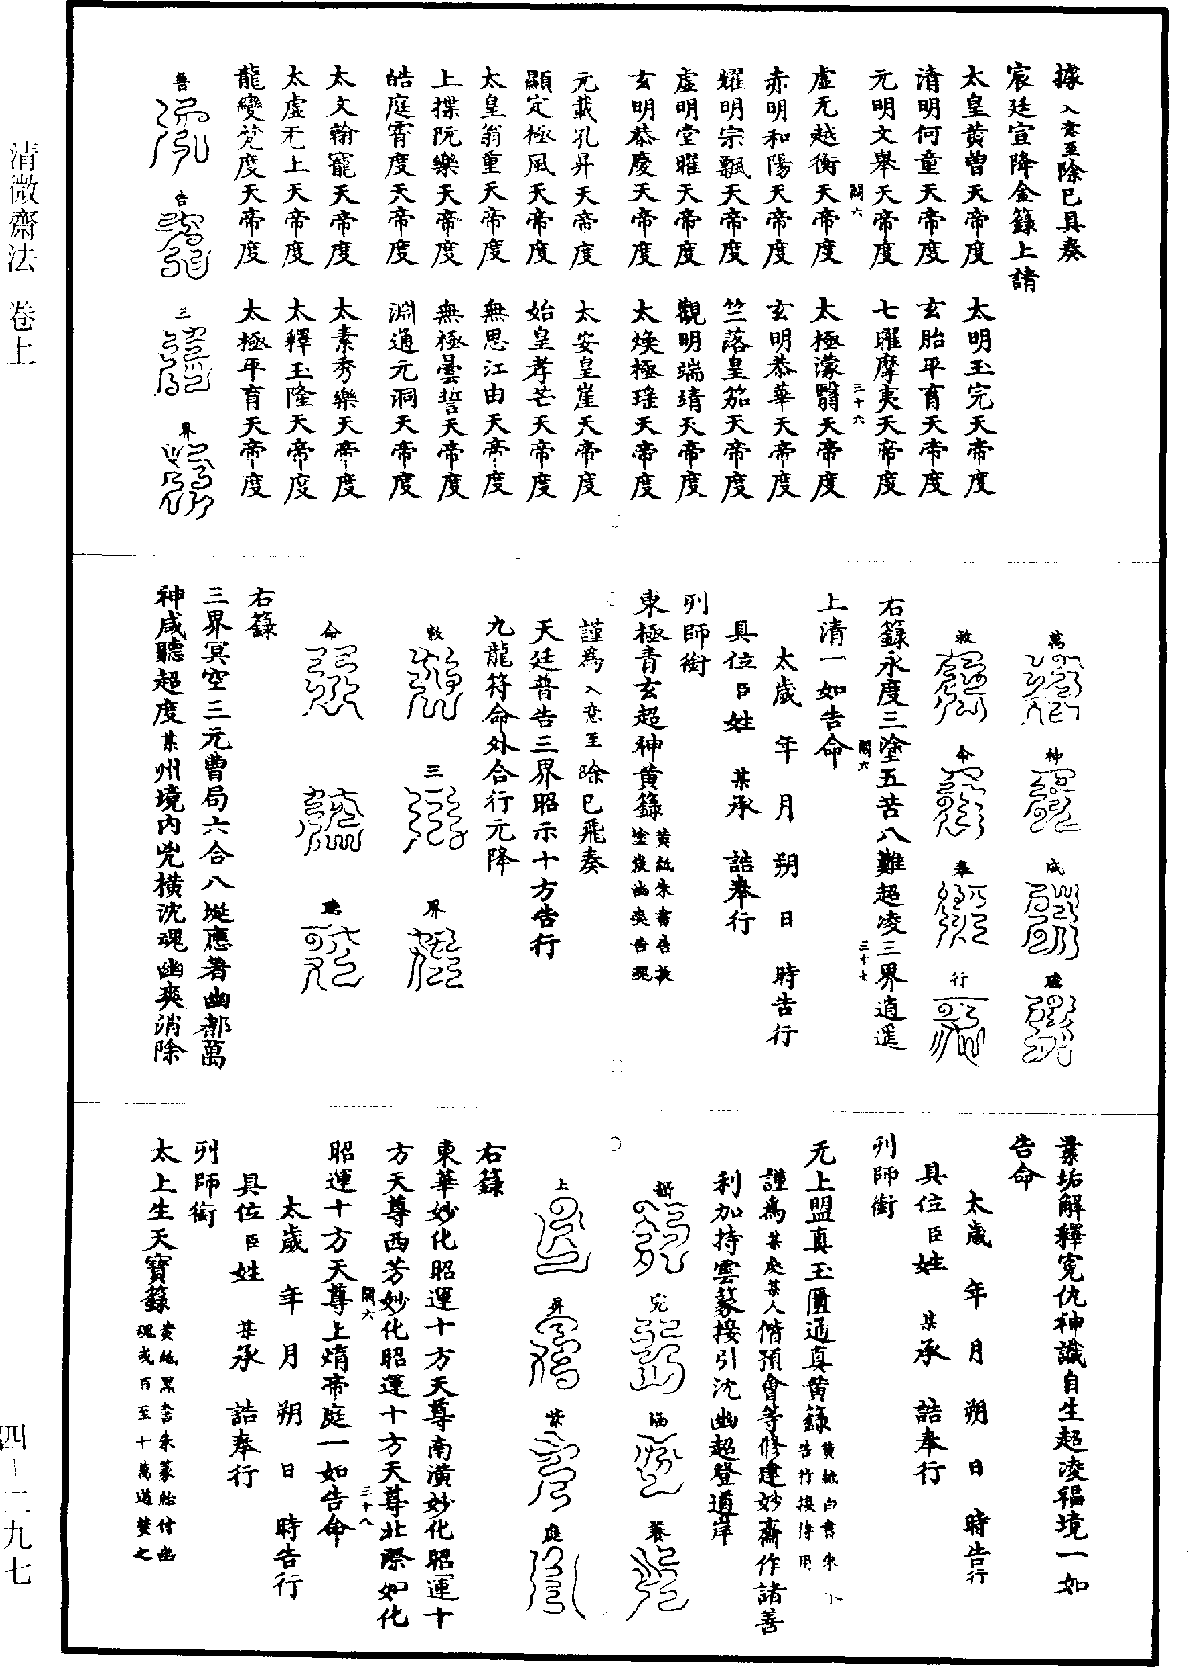 據入意至除已具奏
宸廷宣降金籙上請
太皇黃曾天帝度 太明玉完天帝度
清明何童天帝度 玄胎平育天帝度
元明文舉天帝度 七曜摩夷天帝度
闕六 三十六
虛无越衡天帝度 太極濛翳天帝度
赤明和陽天帝度 玄明恭華天帝度
耀明宗飄天帝度 竺落皇笳天帝度
虛明堂曜天帝度 觀明端靖天帝度
玄明恭慶天帝度 太煥極瑤天帝度
元載孔昇天帝度 太安皇崖天帝度
顯定極風天帝度 始皇孝芒天帝度
太皇翁重天帝度 無思江由天帝度
上揲阮樂天帝度 無極曇誓天帝度
皓庭霄度天帝度 淵通元洞天帝度
太文翰寵天帝度 太素秀樂天帝度
太虛无上天帝度 太釋玉隆天帝度
龍變梵度天帝度 太極平育天帝度
普 告 三 界
萬 神 咸 聽
敕 命 奉 行
右籙永度三塗五苦八難超凌三界逍遥
闕六 三十七
上清一如告命
太歲 年 月 朔 日 時告行
具位臣姓 某承 誥奉行
列師銜
東極青玄超神黃籙黃紙朱書告拔塗炭幽爽苦魂
謹為入意至除已飛奏
天廷普告三界昭示十方告行
九龍符命外合行元降
敕 三 界
命 聽
右籙
三界冥空三元曹局六合八埏應著幽都萬
神咸聽超度某州境內兇橫沈魂幽爽消除
業垢解釋冤仇神識自生超凌福境一如
告命
太歲 年 月 朔 日 時告行
具位臣姓 某承 誥奉行
列師銜
无上盟真玉匱通真黃籙黃紙白書朱 告行接待用
謹為某處某人偕預會等修建妙齋作諸善
利加持雲篆接引沈幽超登道岸
上 昇 紫 庭
右籙
東華妙化昭運十方天尊南潢妙化昭運十
方天尊西芳妙化昭運十方天尊北際如化
闕六 三十八
昭運十方天尊上熕帝庭一如告命
太歲 年 月 朔 日 時告行
具位臣姓 某承 誥奉行
列師銜
太上生天寶籙黃紙黑書朱篆給付幽魂或百至十萬道焚之
清微齋法 卷上
四－二九七